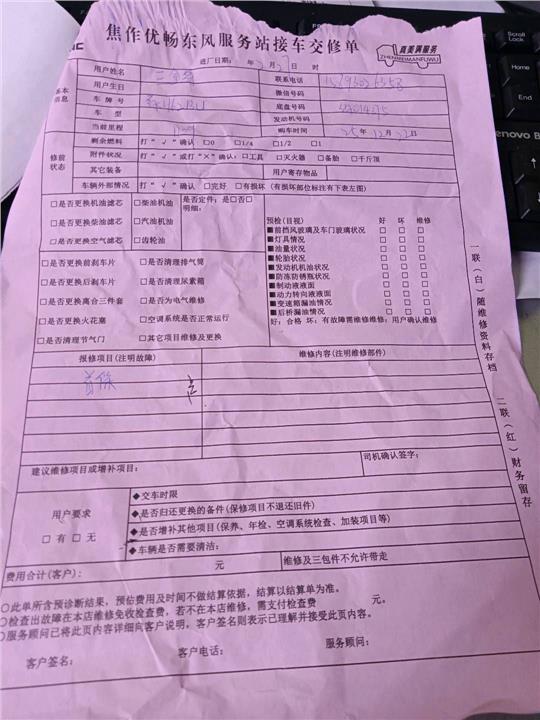 焦作优畅东风服务站接车交修单
真美满服务
ZHENMEIMANFUWU
进厂日期： 年 月 7日 时
基本信息
用户姓名
联系电话
用户生日
微信号码
车牌号
底盘号码
车型
发动机号码
当前里程
购车时间 25年12月22日
修前状态
剩余燃料 打“√”确认 □0 □1/4 □1/2 □1
附件状况 打“√”或打“×”确认：□工具 □灭火器 □备胎 □千斤顶
其它装备
用户寄存物品
车辆外部情况 打“√”确认 □完好 □有损坏（有损坏部位标注有下表左图）
□是否更换机油滤芯 □柴油机油 是否定件：是□否□
明细：
□是否更换柴油滤芯 □汽油机油
□是否更换空气滤芯 □齿轮油
□是否更换前刹车片 □是否清理排气筒
□是否更换后刹车片 □是否清理尿素箱
□是否更换离合三件套 □是否为电气维修
□是否更换火花塞 □空调系统是否正常运行
□是否清理节气门 □其它项目维修及更换
预检（目视） 好 坏 维修
■前挡风玻璃及车门玻璃状况 □ □ □
■灯具情况 □ □ □
■油量状况 □ □ □
■轮胎状况 □ □ □
■发动机机油状况 □ □ □
■防冻防锈瓶状况 □ □ □
■制动液液面 □ □ □
■动力转向液液面 □ □ □
■变速箱漏油情况 □ □ □
■后桥漏油情况 □ □ □
好：合格 坏：有故障需维修维修：用户确认维修
报修项目（注明故障）
维修内容（注明维修部件）
首保
建议维修项目或增补项目：
司机确认签字：
用户要求
□有 □无
◆交车时限
◆是否归还更换的备件（保修项目不退还旧件）
◆是否增补其他项目（保养、年检、空调系统检查、加装项目等）
◆车辆是否需要清洁：
费用合计（客户）： 元
维修及三包件不允许带走
○此单所含预诊断结果，预估费用及时间不做结算依据，结算以结算单为准。
○检查出故障在本店维修免收检查费，若不在本店维修，需支付检查费 元。
○服务顾问已将此页内容详细向客户说明，客户签名则表示已理解并接受此页内容。
客户签名：
客户电话：
服务顾问：
一联（白）随维修资料存档
二联（红）财务留存
Scroll
Lock
Home
End
enovo